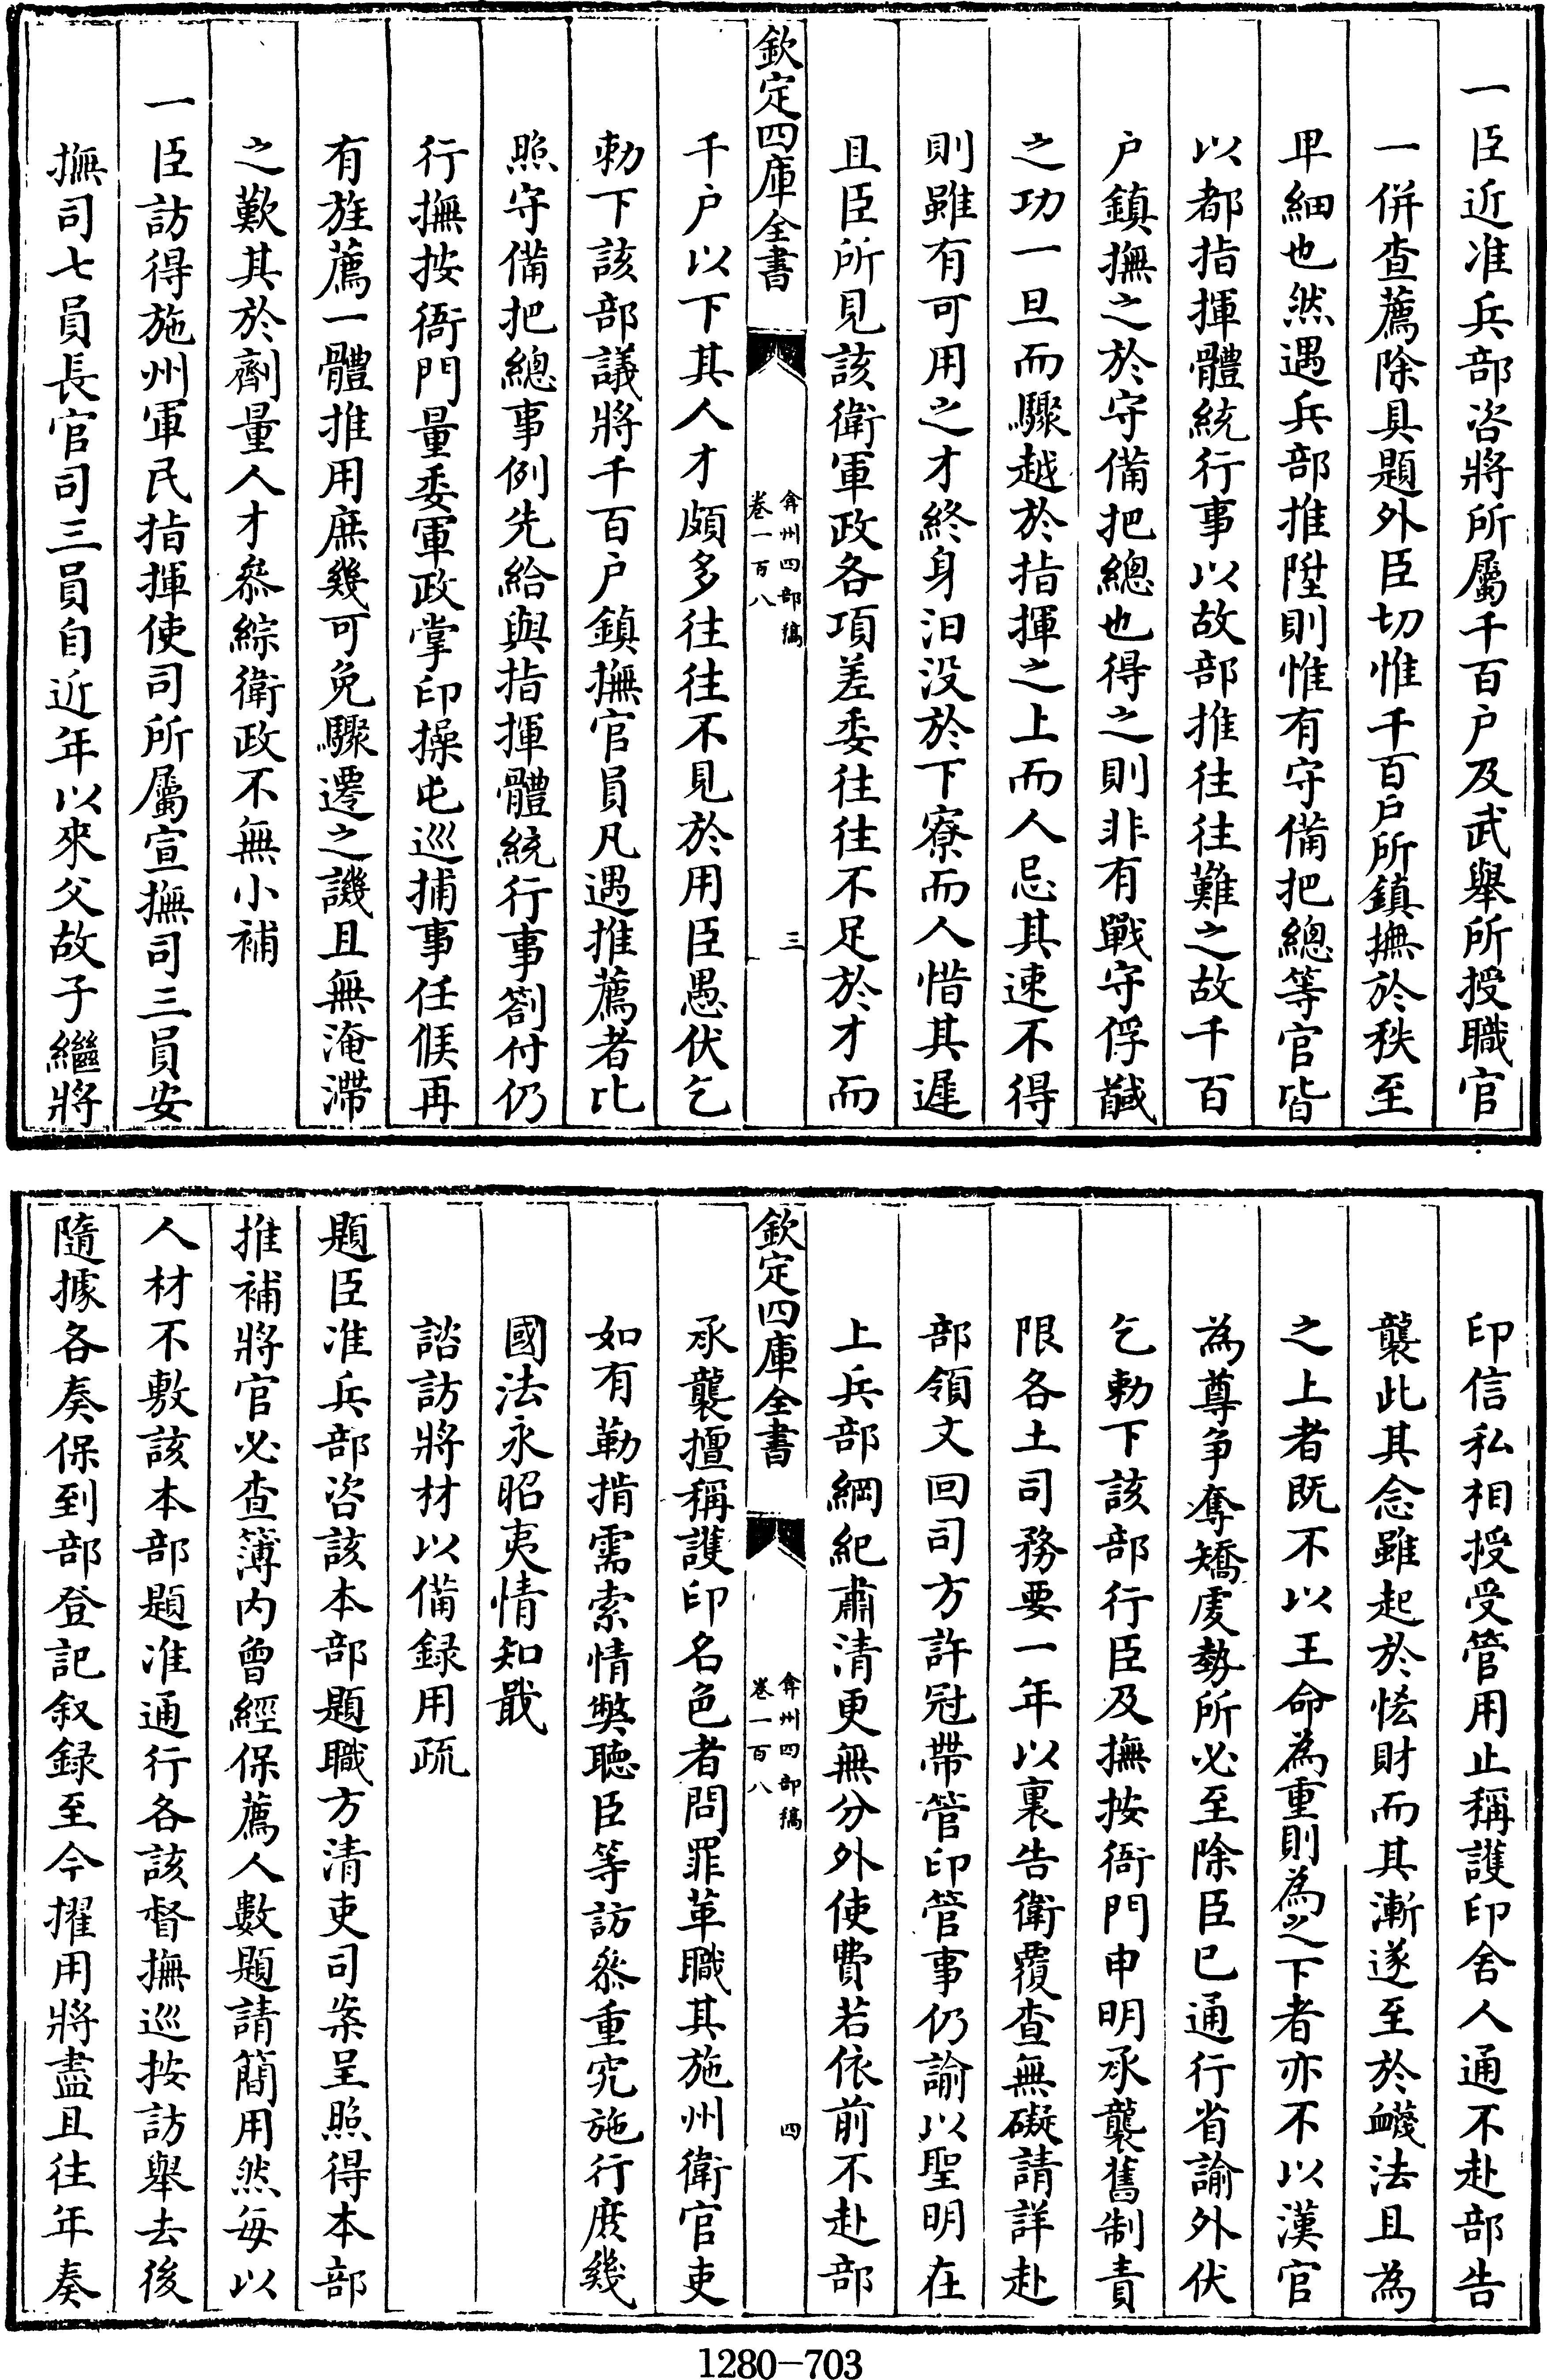 一臣近准兵部咨將所屬千百户及武舉所授職官
一併查薦除具題外臣切惟千百戶所鎮撫於秩至
卑細也然遇兵部推陞則惟有守備把總等官皆
以都指揮體統行事以故部推往往難之故千百
户鎮撫之於守備把總也得之則非有戰守俘馘
之功一旦而驟越於指揮之上而人忌其速不得
則雖有可用之才終身汩没於下寮而人惜其遲
且臣所見該衛軍政各項差委往往不足於才而
欽定四庫全書
弇州四部稿
卷一百八
三
千户以下其人才頗多往往不見於用臣愚伏乞
勅下該部議將千百户鎮撫官員凡遇推薦者比
照守備把總事例先給與指揮體統行事劄付仍
行撫按衙門量委軍政掌印操屯巡捕事任候再
有旌薦一體推用庶幾可免驟遷之譏且無淹滯
之歎其於劑量人才叅綜衛政不無小補
一臣訪得施州軍民指揮使司所屬宣撫司三員安
撫司七員長官司三員自近年以來父故子繼將
印信私相授受管用止稱護印舍人通不赴部告
襲此其念雖起於恡財而其漸遂至於衊法且為
之上者既不以王命為重則為之下者亦不以漢官
為尊争奪矯虔勢所必至除臣已通行省諭外伏
乞勅下該部行臣及撫按衙門申明承襲舊制責
限各土司務要一年以裏告衛覆查無礙請詳赴
部領文回司方許冠帶管印管事仍諭以聖明在
上兵部綱紀肅清更無分外使費若依前不赴部
欽定四庫全書
弇州四部稿
卷一百八
四
承襲擅稱護印名色者問罪革職其施州衛官吏
如有勒掯需索情弊聽臣等訪叅重究施行庶幾
國法永昭夷情知戢
諮訪將材以備録用疏
題臣准兵部咨該本部題職方清吏司案呈照得本部
推補將官必查簿内曾經保薦人數題請簡用然每以
人材不敷該本部題准通行各該督撫巡按訪舉去後
隨據各奏保到部登記叙録至今擢用將盡且往年奏
1280-703